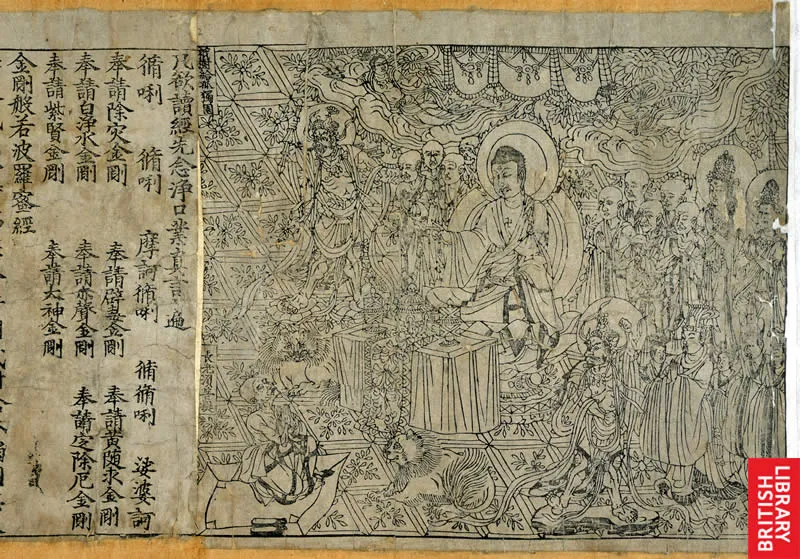 祇樹給孤獨園
凡欲讀經先念淨口業真言一遍
脩唎 脩唎 摩訶脩唎 脩脩唎 娑婆訶
奉請除灾金剛 奉請辟毒金剛 奉請黃随求金剛
奉請白淨水金剛 奉請赤聲金剛 奉請定除厄金剛
奉請紫賢金剛 奉請大神金剛
金剛般若波羅蜜經
BRITISH
LIBRARY